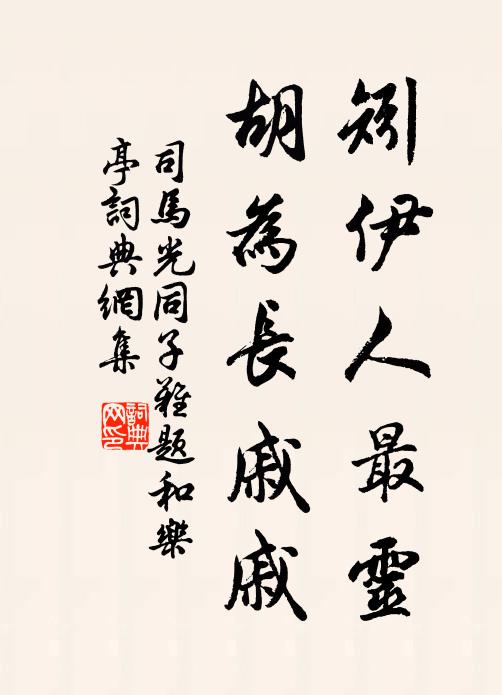 矧伊人最靈
胡為長戚戚
司馬光同子難題和樂
亭詞典網集
詞典网印